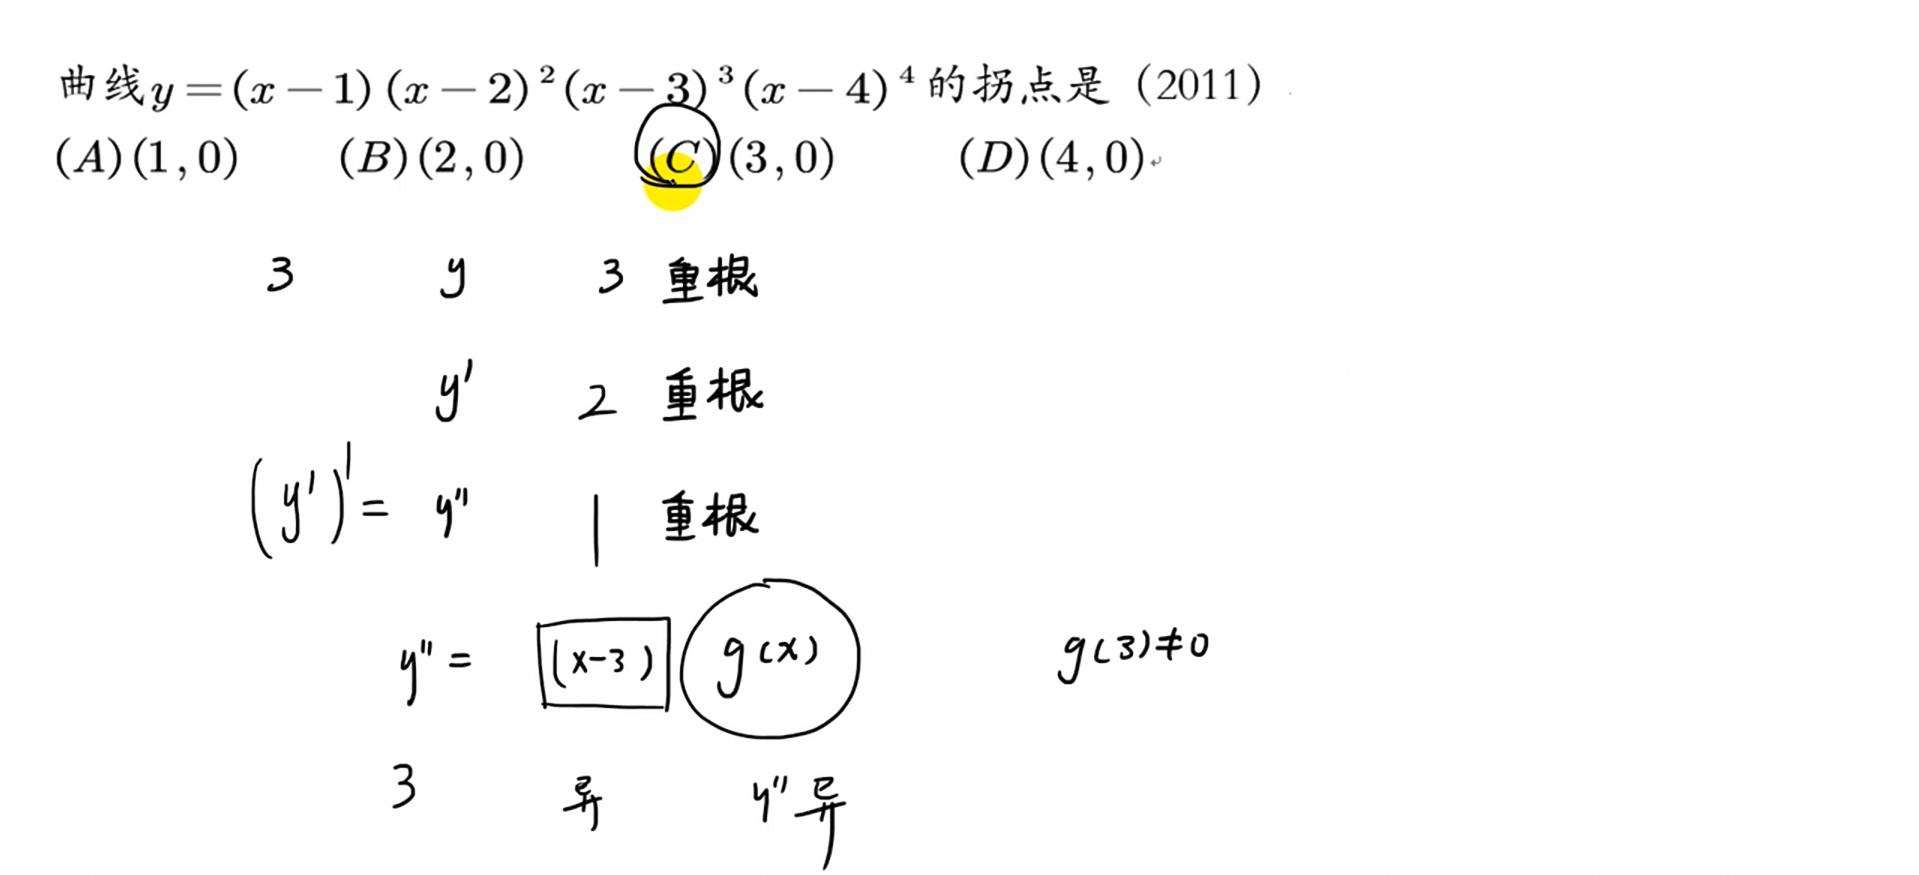 曲线y=(x−1)(x−2)²(x−3)³(x−4)⁴的拐点是（2011）
(A)(1,0) (B)(2,0) (C)(3,0) (D)(4,0)
3 y 3 重根
y′ 2 重根
(y′)′= y″ 1 重根
y″= (x-3) g(x) g(3)≠0
3 异 y″异